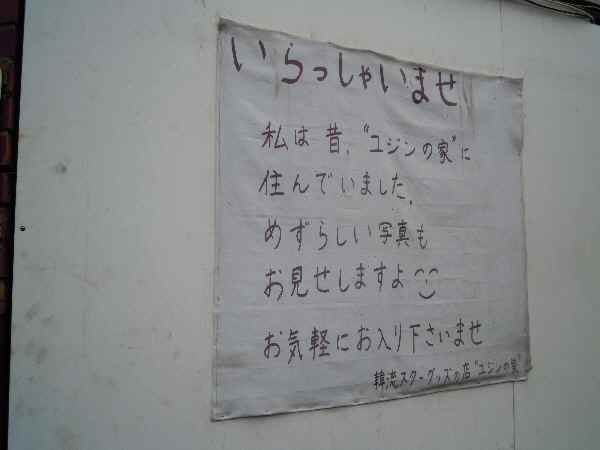 いらっしゃいませ
私は昔、"ユジンの家"に
住んでいました。
めずらしい写真も
お見せしますよ
お気軽にお入り下さいませ
韓流スターグッズの店"ユジンの家"